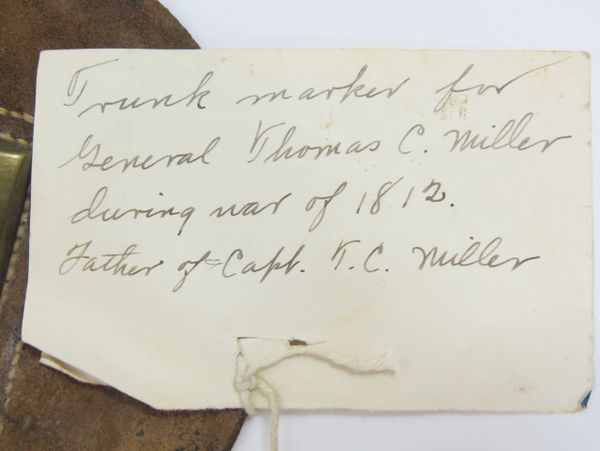 Trunk marker for
General Thomas C. Miller
during war of 1812.
Father of Capt. T. C. Miller